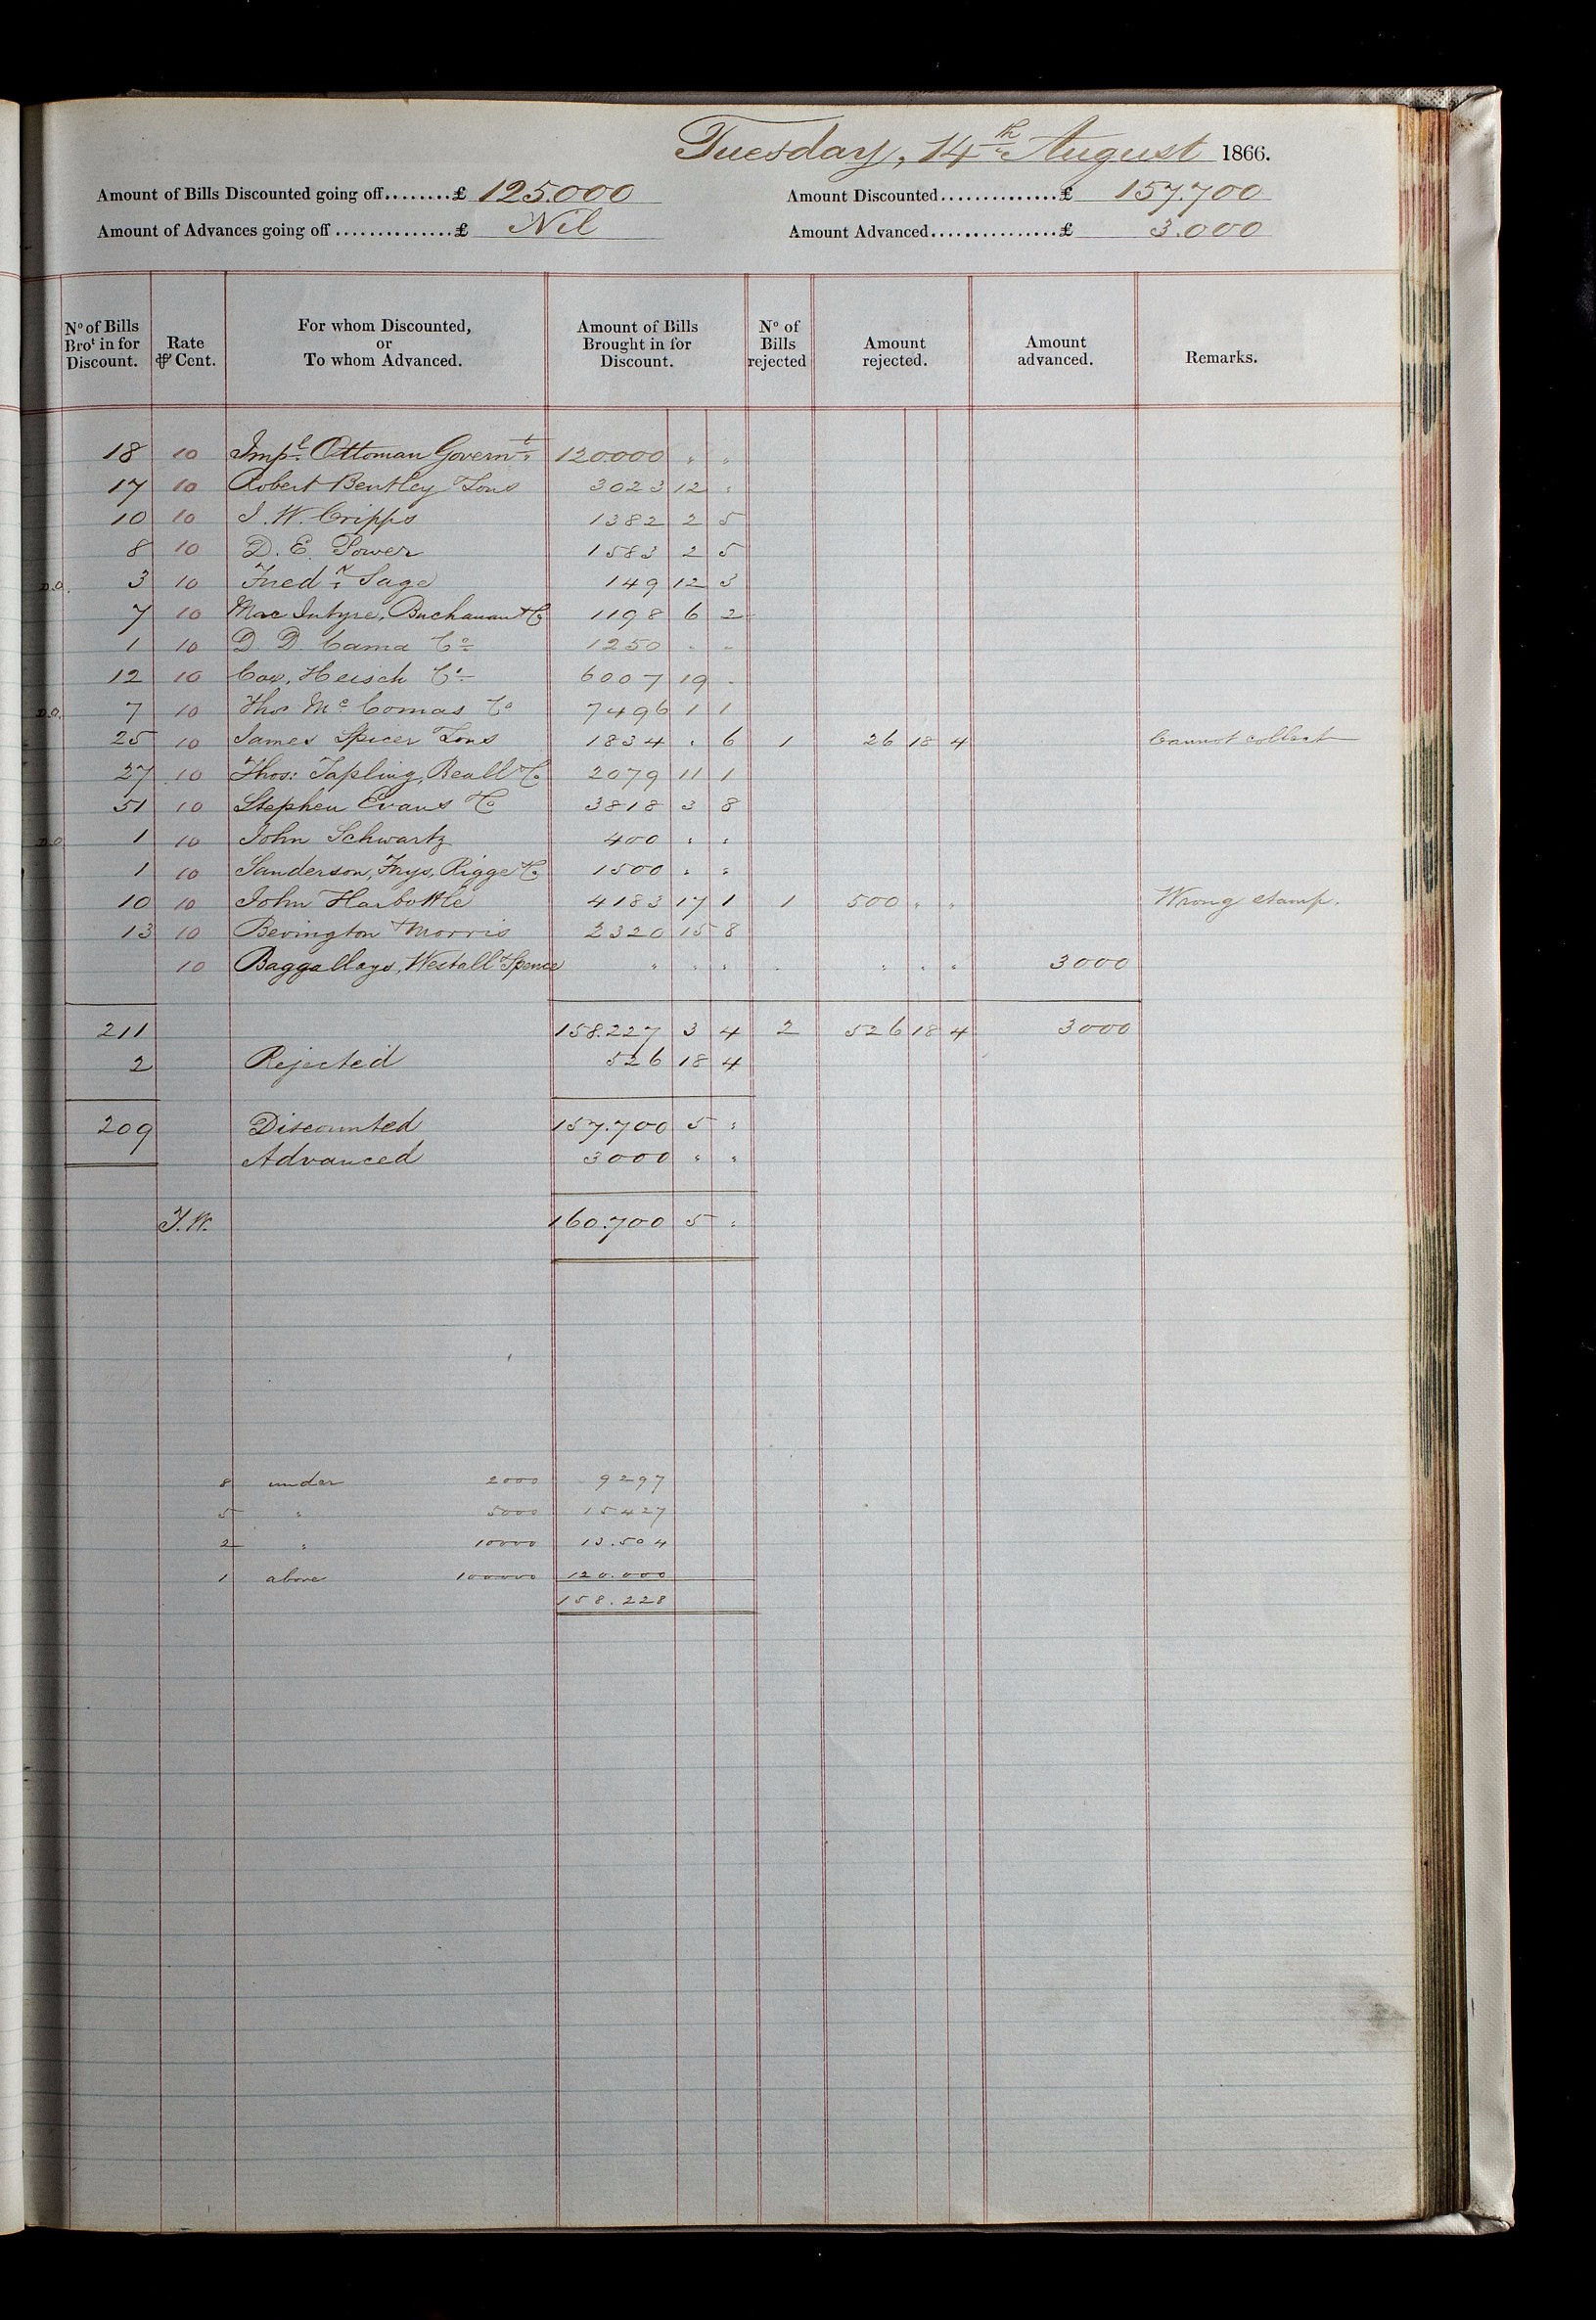 Tuesday, 14th August 1866.
Amount of Bills Discounted going off........£ 125.000 Amount Discounted..............£ 157.700
Amount of Advances going off..............£ Nil Amount Advanced................£ 3.000
No of Bills Brot in for Discount. Rate ⅌ Cent. For whom Discounted, or To whom Advanced. Amount of Bills Brought in for Discount. No of Bills rejected Amount rejected. Amount advanced. Remarks.
18 10 Impl Ottoman Governt 120000 " "
17 10 Robert Bentley & Sons 3023 12 "
10 10 J. W. Cripps 1382 2 5
8 10 D. E. Power 1583 2 5
D.O. 3 10 Fredk Sage 149 12 3
7 10 MacIntyre, Buchanan & Co 1198 6 2
1 10 D. D. Cama & Co 1250 " "
12 10 Cox, Heisch & Co 6007 19 "
D.O. 7 10 Thos McComas & Co 7496 1 1
25 10 James Spicer & Sons 1834 " 6 1 26 18 4 Cannot collect
27 10 Thos: Tapling, Beall & Co 2079 11 1
51 10 Stephen Evans & Co 3818 3 8
D.O. 1 10 John Schwartz 400 " "
1 10 Sanderson, Frys, Rigge & Co 1500 " "
10 10 John Harbottle 4183 17 1 1 500 " " Wrong stamp.
13 10 Bevington & Morris 2320 15 8
10 Baggallays, Westall & Spence " " " " " " " 3000
211 158.227 3 4 2 526 18 4 3000
2 Rejected 526 18 4
209 Discounted 157.700 5 "
Advanced 3000 " "
J.W. 160.700 5 "
8 under 2000 9297
5 " 5000 15427
2 " 10000 13.504
1 above 100000 120.000
158.228